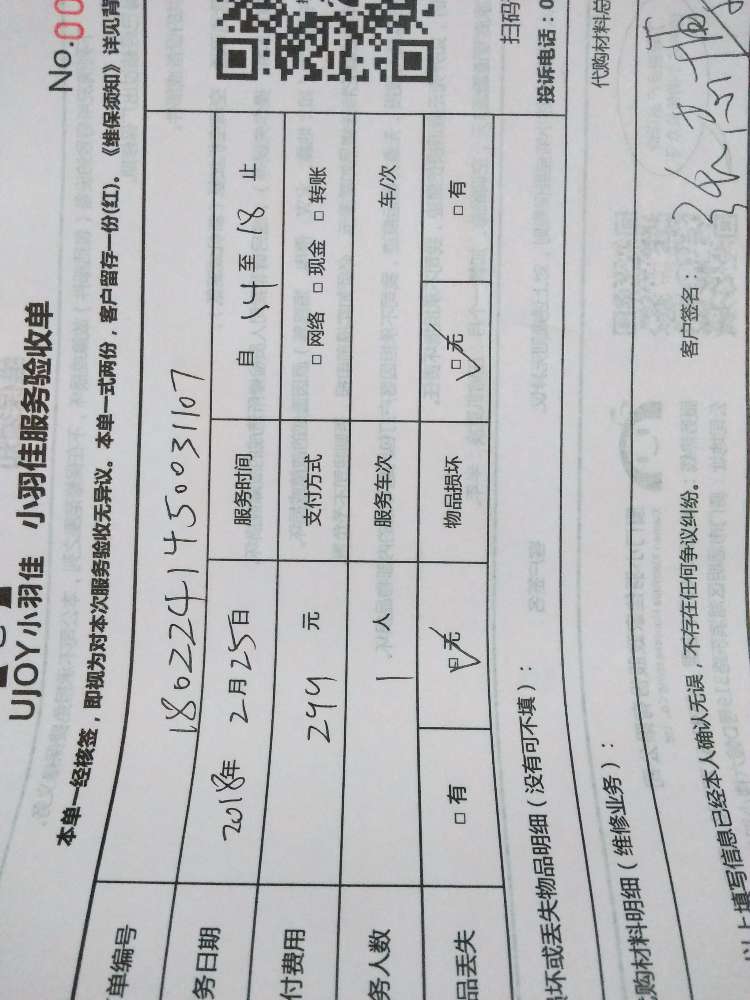 No.00
UJOY小羽佳 小羽佳服务验收单
本单一经核签，即视为对本次服务验收无异议。本单一式两份，客户留存一份(红)。《维保须知》详见背
单编号 1802241450031107
务日期 2018年2月25日 服务时间 自 14 至 18 止
付费用 299 元 支付方式 □ 网络 □ 现金 □ 转账
务人数 1 人 服务车次 车/次
品丢失 □ 有 □ 无 物品损坏 □ 无 □ 有
扫码
损坏或丢失物品明细（没有可不填）： 投诉电话：0
购材料明细（维修业务）： 代购材料总
以上填写信息已经本人确认无误，不存在任何争议纠纷。 客户签名：